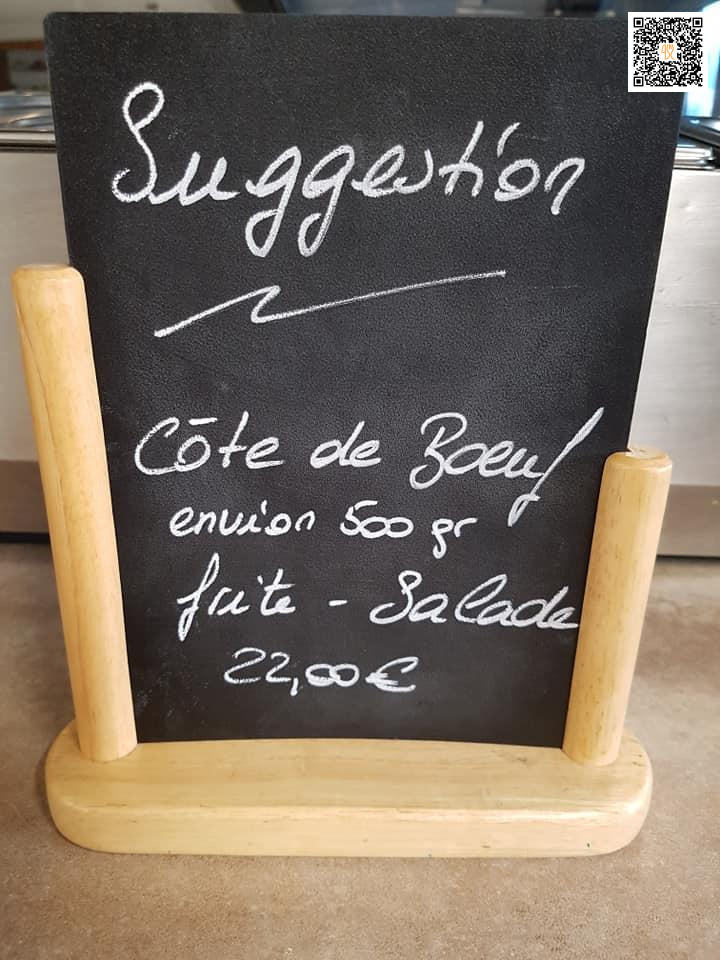 Suggestion
Côte de Boeuf
environ 500 gr
frite - Salade
22,00€